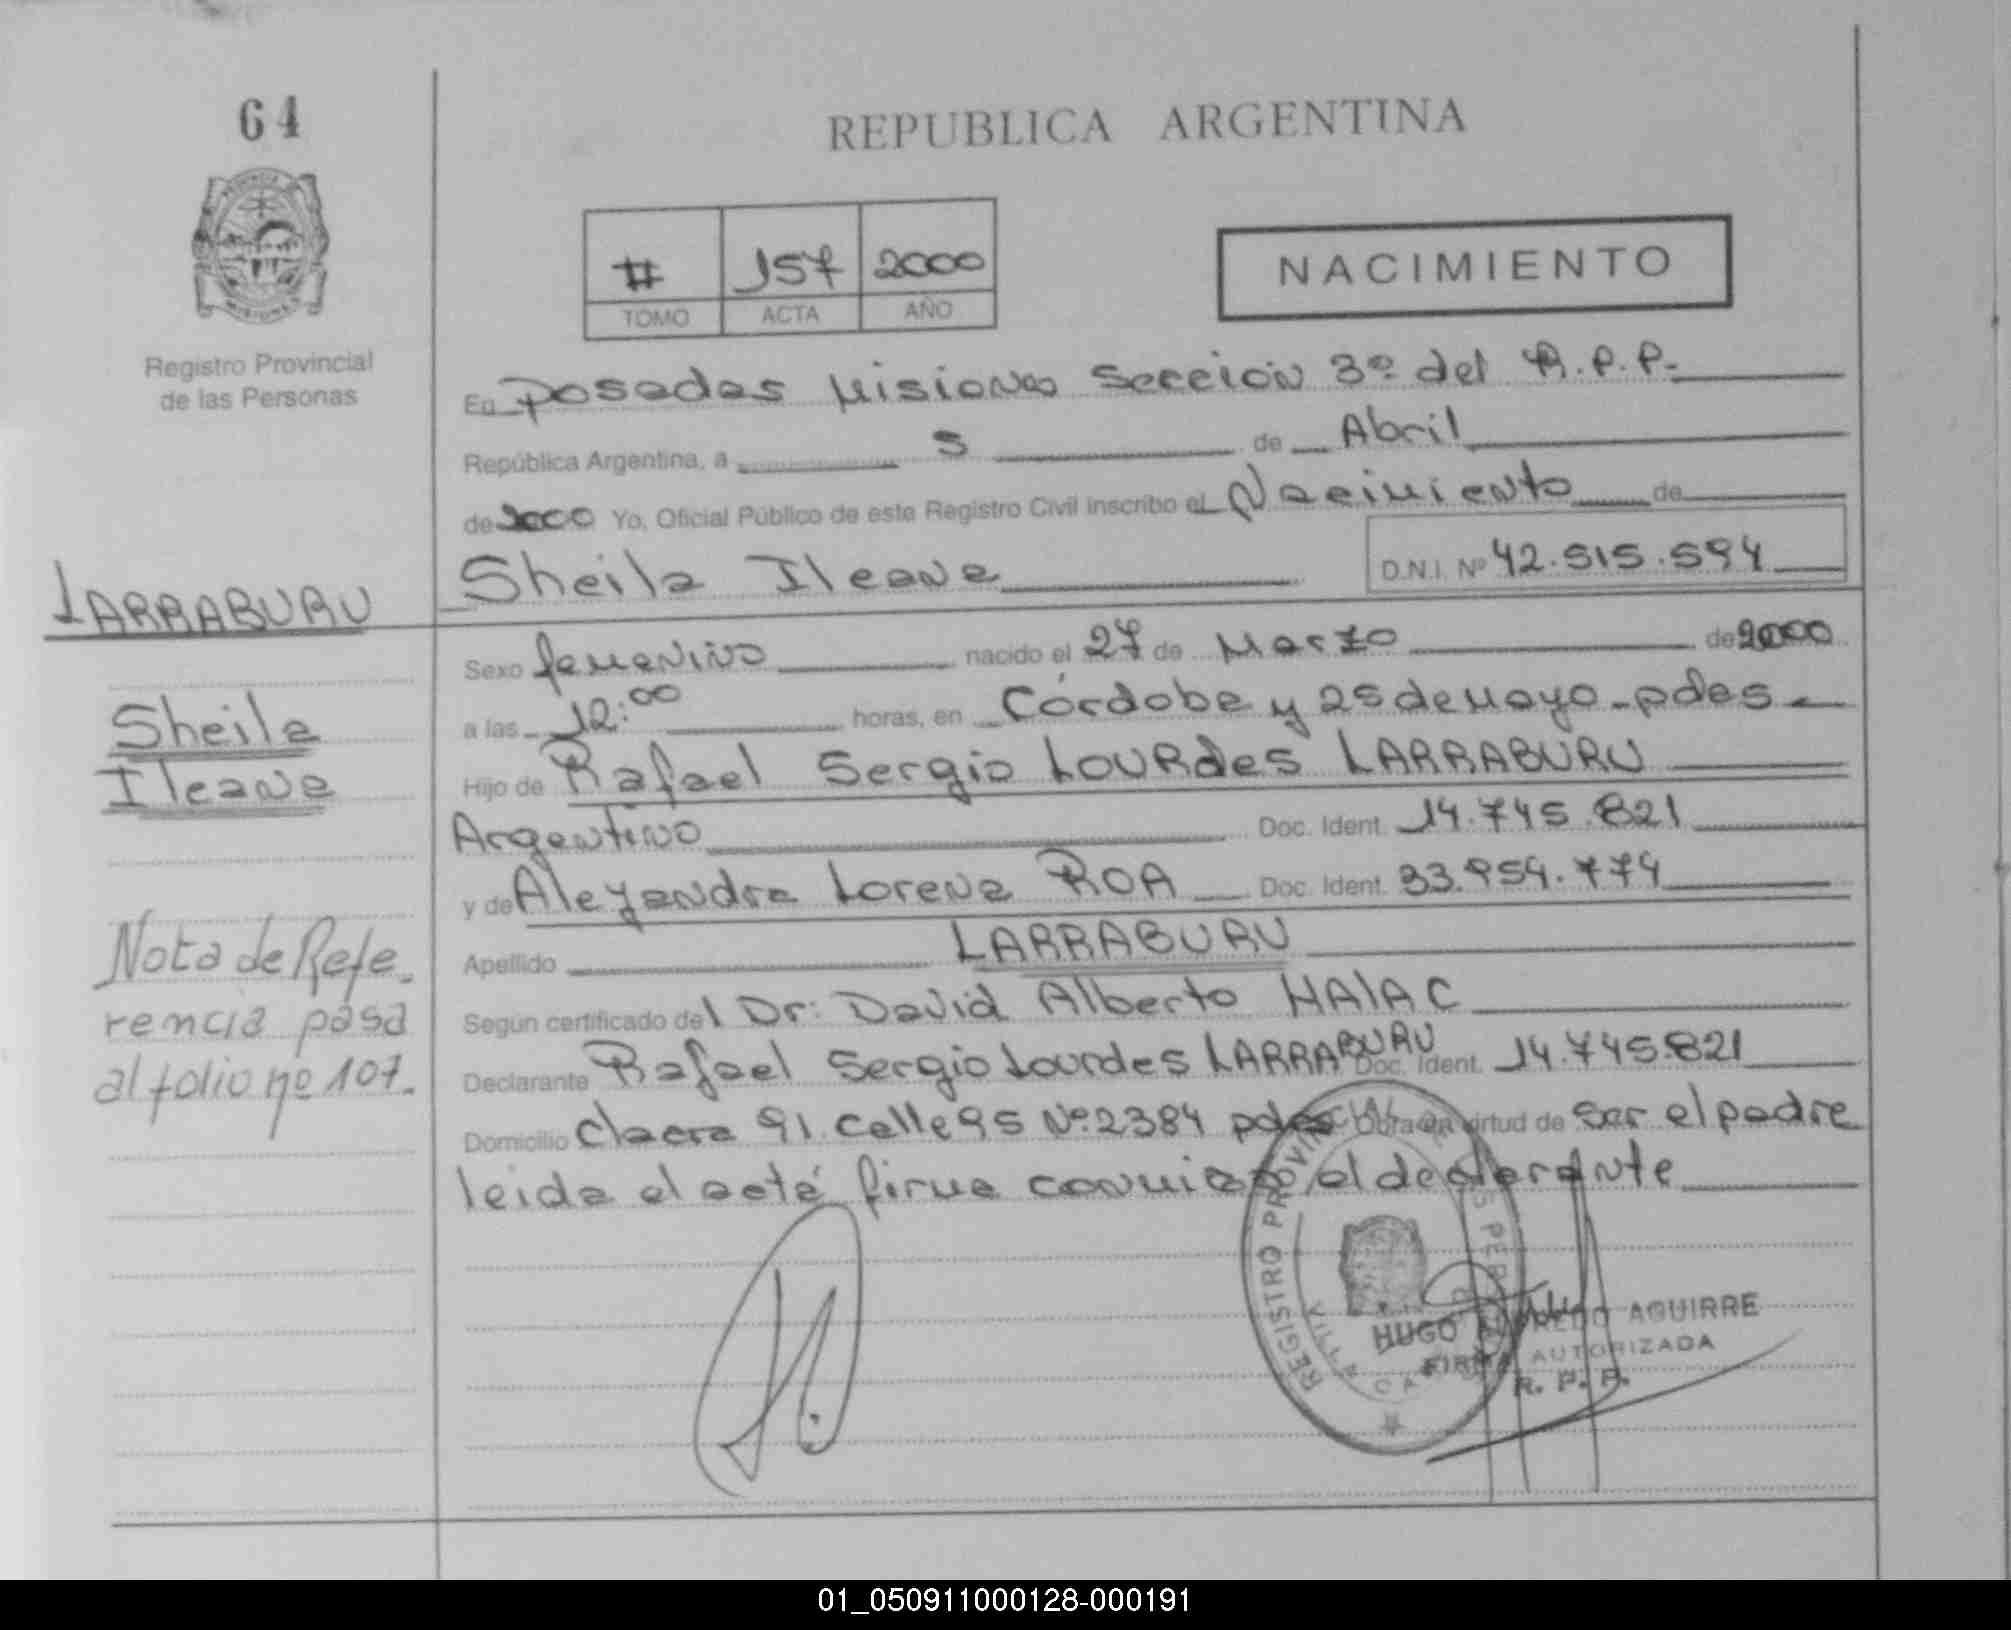 64
REPUBLICA ARGENTINA
# 157 2000
TOMO ACTA AÑO
NACIMIENTO
Registro Provincial
de las Personas
En Posadas Misiones Sección 3º del R.P.P.
República Argentina, a 5 de Abril
de 2000 Yo, Oficial Público de este Registro Civil inscribo el Nacimiento de
Sheila Ileana D.N.I. Nº 42.515.594
LARRABURU
Sheila
Ileana
Nota de Refe-
rencia pasa
al folio nº 107.
Sexo femenino nacido el 27 de Marzo de 2000
a las 12:00 horas, en Córdoba y 25 de Mayo - pdas -
Hijo de Rafael Sergio Lourdes LARRABURU
Argentino Doc. Ident. 14.745.821
y de Alejandra Lorena ROA Doc. Ident. 33.954.774
Apellido LARRABURU
Según certificado del Dr: David Alberto HAIAC
Declarante Rafael Sergio Lourdes LARRABURU Doc. Ident. 14.745.821
Domicilio Chacra 91 Calle 95 Nº 2384 pdas Obra en virtud de ser el padre
leida el acta firma conmigo el declarante
REGISTRO PROVINCIAL
HUGO AGUIRRE
FIRMA AUTORIZADA
R. P. P.
01_050911000128-000191